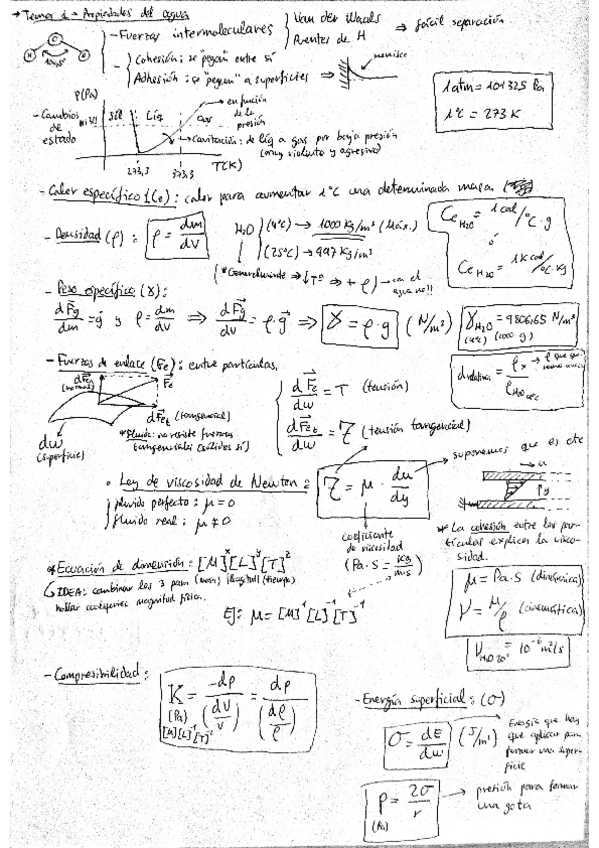 → Tema 1 → Propiedades del agua
- Fuerzas intermoleculares { Van der Waals
Puentes de H ⇒ fácil separación
- { Cohesión: se "pegan" entre sí
Adhesión: se "pegan" a superficies ⇒
menisco
1 atm = 101325 Pa
1ºC = 273 K
- Cambios de estado
P(Pa)
Sól Líq Gas
en función de la presión
Cavitación: de líq a gas por baja presión
(muy violento y agresivo)
T(K)
273,3 373,3
- Calor específico (Ce): calor para aumentar 1ºC una determinada masa.
Ce H2O = 1 cal/ºC·g
ó
Ce H2O = 1 Kcal/ºC·Kg
- Densidad (ρ): ρ = dm/dV
H2O { (4ºC) → 1000 Kg/m³ (Máx.)
(25ºC) → 997 Kg/m³
(*Generalmente → ↓Tº ⇒ + ρ) → con el agua no!!
- Peso específico (γ):
dFg/dm = g y ρ = dm/dV ⇒ dFg/dV = ρ·g ⇒ γ = ρ·g (N/m³)
γ H2O = 9806,65 N/m³
(4ºC) (1000·g)
- Fuerzas de enlace (Fe): entre partículas.
d relativa = ρx / ρ H2O 4ºC
Fe
dFet (tangencial)
dw
(superficie)
*Fluido: no resiste fuerzas
tangenciales (sólidos sí)
dFe/dw = T (tensión)
dFet/dw = τ (tensión tangencial)
◦ Ley de viscosidad de Newton: τ = μ · du/dy
suponemos que es cte
fluido perfecto: μ = 0
fluido real: μ ≠ 0
coeficiente
de viscosidad
(Pa·s = Kg/m·s)
* La cohesión entre las par-
tículas explica la visco-
sidad.
μ = Pa·s (dinámica)
ν = μ/ρ (cinemática)
ν H2O 20º = 10⁻⁶ m²/s
* Ecuación de dimensión: [M]ˣ[L]ʸ[T]ᶻ
IDEA: combinar los 3 para (masa) (longitud) (tiempo)
hallar cualquier magnitud física.
Ej: μ = [M]¹[L]⁻¹[T]⁻¹
- Compresibilidad:
K = -dp/(dV/V) = dp/(dρ/ρ)
(Pa)
[M][L]⁻¹[T]⁻²
- Energía superficial: (σ)
σ = dE/dw (J/m²)
Energía que hay
que aplicar para
formar una super-
ficie
P = 2σ/r → presión para formar
una gota
(Pa)